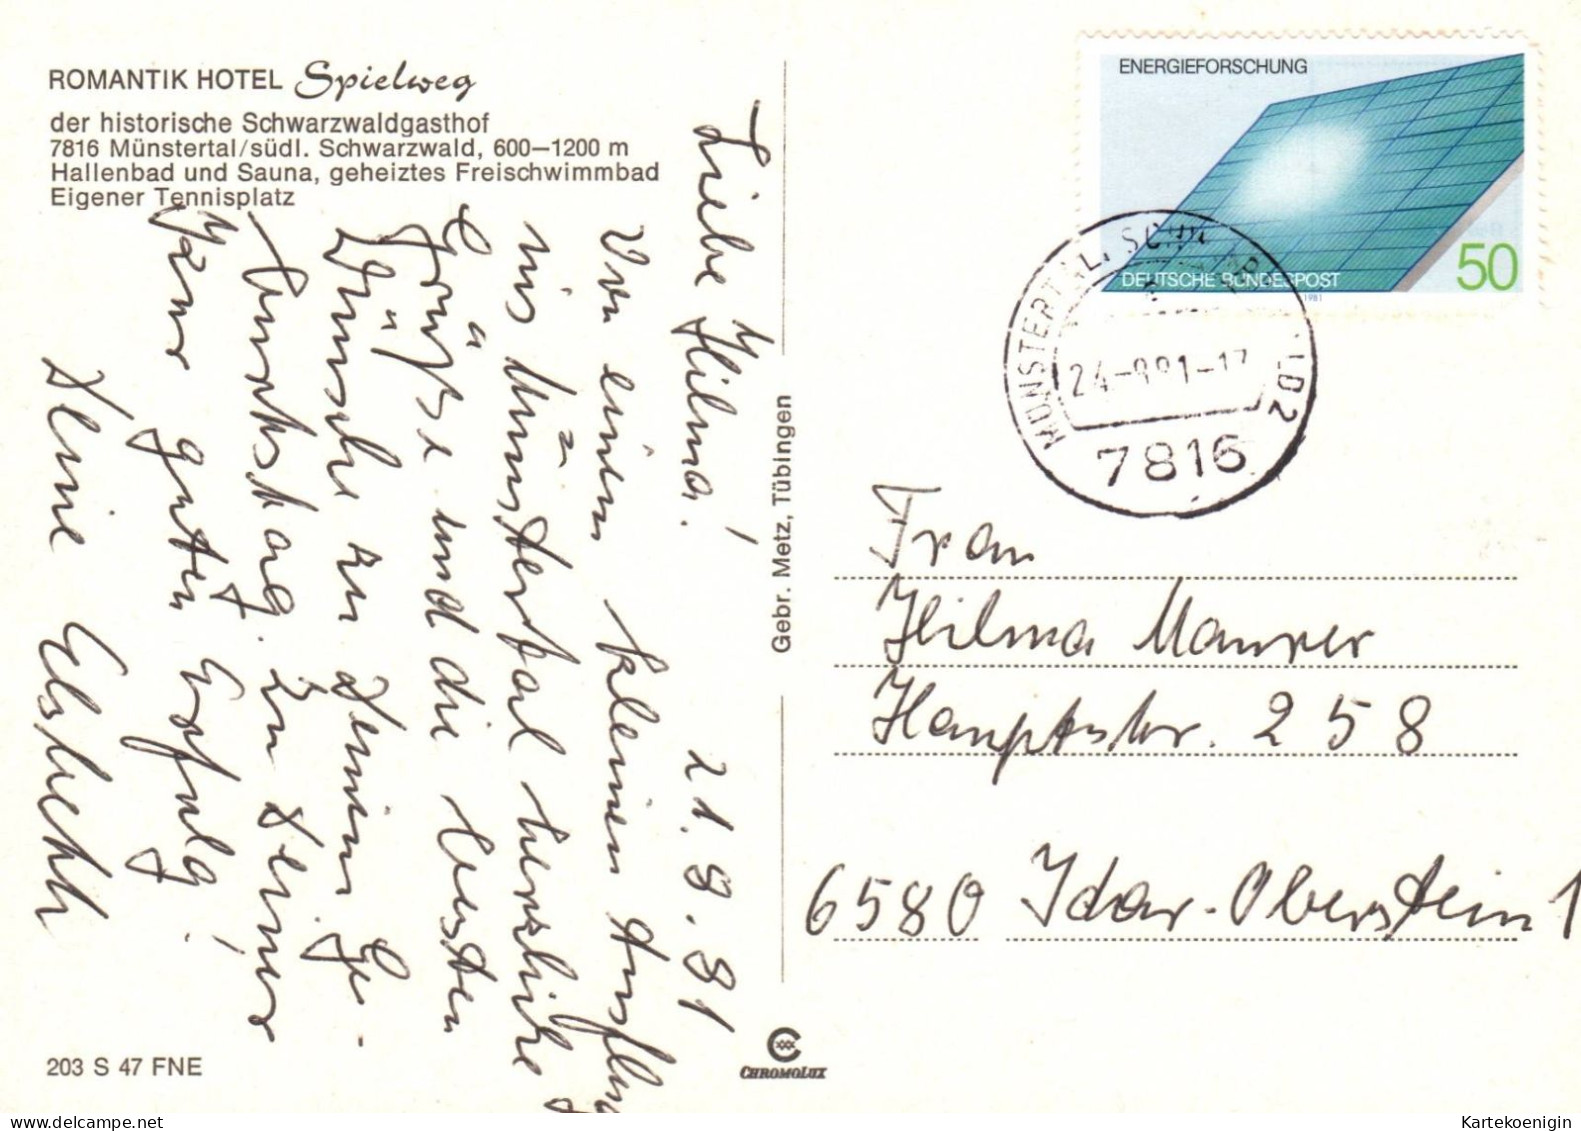 ROMANTIK HOTEL Spielweg
der historische Schwarzwaldgasthof
7816 Münstertal/südl. Schwarzwald, 600–1200 m
Hallenbad und Sauna, geheiztes Freischwimmbad
Eigener Tennisplatz
Liebe Hilma!
21.9.81
Von einem kleinen Ausflug
ins Münstertal herzliche
Grüße und die besten
Wünsche zu Deinem Ge-
burtstag. Zu Deiner
guten Erfolg!
Deine Elsbeth
203 S 47 FNE
Gebr. Metz, Tübingen
CHROMOLUX
ENERGIEFORSCHUNG
DEUTSCHE BUNDESPOST
50
1981
MÜNSTERTAL, SCHW
LD 2
24.-9.81-17
7816
Frau
Hilma Maurer
Hauptstr. 258
6580 Idar-Oberstein 1
www.delcampe.net
Kartekoenigin